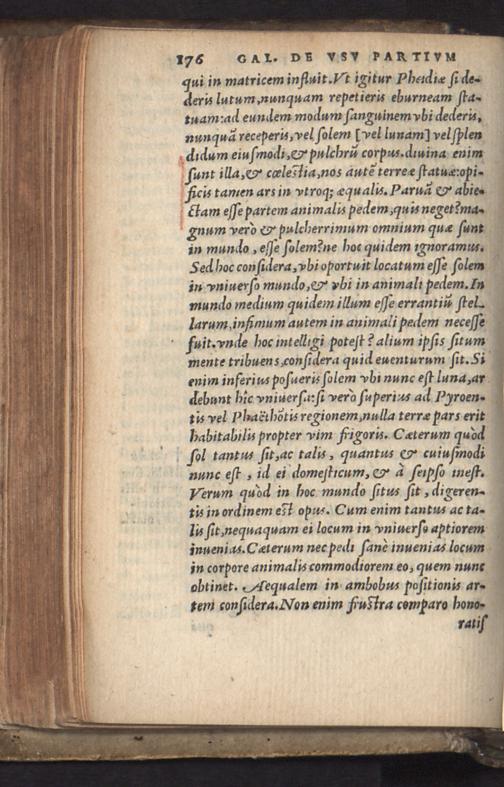 176 GAL. DE VSV PARTIVM
qui in matricem influit. Vt igitur Phidiæ si de-
deris lutum, nunquam repetieris eburneam sta-
tuam: ad eundem modum sanguinem vbi dederis,
nunquā receperis, vel solem [vel lunam] vel splen
didum eiusmodi, & pulchrū corpus. diuina enim
sunt illa, & cœlestia, nos autē terreæ statuæ: opi-
ficis tamen ars in vtroq; æqualis. Paruā & abie-
ctam esse partem animalis pedem, quis neget? ma-
gnum verò & pulcherrimum omnium quæ sunt
in mundo, esse solem? ne hoc quidem ignoramus.
Sed hoc considera, vbi oportuit locatum esse solem
in vniuerso mundo, & vbi in animali pedem. In
mundo medium quidem illum esse errantiū stel-
larum, infimum autem in animali pedem necesse
fuit. vnde hoc intelligi potest? alium ipsis situm
mente tribuens, considera quid euenturum sit. Si
enim inferius posueris solem vbi nunc est luna, ar
debunt hîc vniuersa: si verò superius ad Pyroen-
tis vel Phaëthōtis regionem, nulla terræ pars erit
habitabilis propter vim frigoris. Cæterum quòd
sol tantus sit, ac talis, quantus & cuiusmodi
nunc est, id ei domesticum, & à seipso inest.
Verum quòd in hoc mundo situs sit, digeren-
tis in ordinem est opus. Cum enim tantus ac ta-
lis sit, nequaquam ei locum in vniuerso aptiorem
inuenias. Cæterum nec pedi sanè inuenias locum
in corpore animalis commodiorem eo, quem nunc
obtinet. Aequalem in ambobus positionis ar-
tem considera. Non enim frustra comparo hono-
ratis